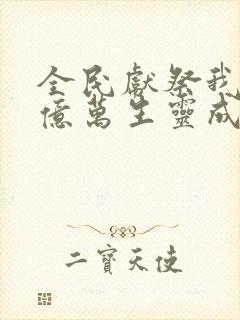 全民獻祭我
億萬生靈成
二寶天使